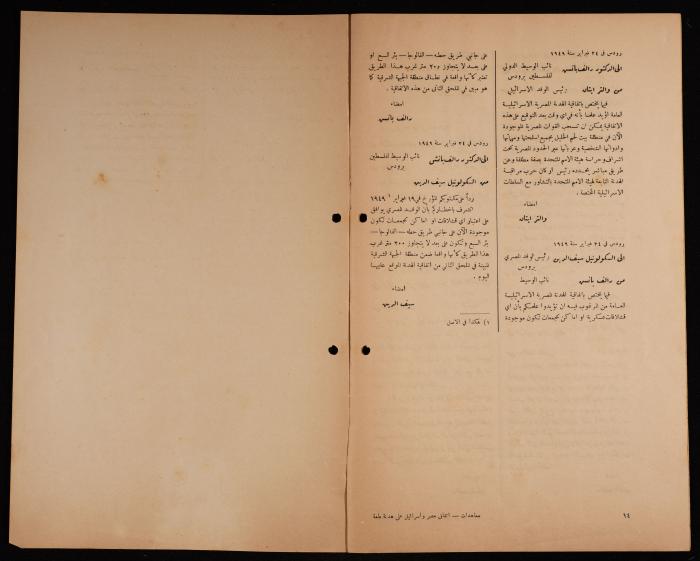 رودس في ٢٤ فبراير سنة ١٩٤٩
الى الدكتور رالف بانش نائب الوسيط الدولي
لفلسطين برودس
من والتر ايتان رئيس الوفد الاسرائيلي
فيما يختص باتفاقية الهدنة المصرية الاسرائيلية
العامة أؤيد علمنا بأنه في اي وقت بعد التوقيع على هذه
الاتفاقية يمكن ان تنسحب القوات المصرية الموجودة
الآن في منطقة بيت لحم الخليل بجميع اسلحتها ومهماتها
وادواتها الشخصية وعرباتها عبر الحدود المصرية تحت
اشراف وحراسة هيئة الامم المتحدة بصفة مطلقة وعن
طريق مباشر يحدده رئيس اركان حرب مراقبة
الهدنة التابعة لهيئة الامم المتحدة بالتشاور مع السلطات
الاسرائيلية المختصة .
امضاء
والتر ايتان
رودس في ٢٤ فبراير سنة ١٩٤٩
الى الكولونيل سيف الدين رئيس الوفد المصري
برودس
من رالف بانش نائب الوسيط
فيما يختص باتفاقية الهدنة المصرية الاسرائيلية
العامة من المرغوب فيه ان تؤيدوا علمكم بأن اي
قشلاقات عسكرية او اماكن تجمعات تكون موجودة
على جانبي طريق حطه — الفالوجا — بئر السبع او
على بعد لا يتجاوز ٢٠٠ متر غرب هذا الطريق
تعتبر كأنها واقعة في نطاق منطقة الجبهة الشرقية كما
هو مبين في الملحق الثاني من هذه الاتفاقية .
امضاء
رالف بانش
رودس في ٢٤ فبراير سنة ١٩٤٩
الى الدكتور رالف بانش نائب الوسيط لفلسطين
برودس
من الكولونيل سيف الدين
رداً على مكتوبكم المؤرخ في ١٩ فبراير ١٩٤٩ ١
اتشرف باخطاركم بأن الوفد المصري يوافق
على اعتبار اي قشلاقات او اماكن تجمعات تكون
موجودة الآن على جانبي طريق حطه — الفالوجا —
بئر السبع وتكون على بعد لا يتجاوز ٢٠٠ متر غرب
هذا الطريق كأنها واقعة ضمن منطقة الجبهة الشرقية
المبينة في الملحق الثاني من اتفاقية الهدنة الموقع عليها
اليوم .
امضاء
سيف الدين
١) هكذا في الاصل
١٤
معاهدات — اتفاق مصر واسرائيل على هدنة عامة